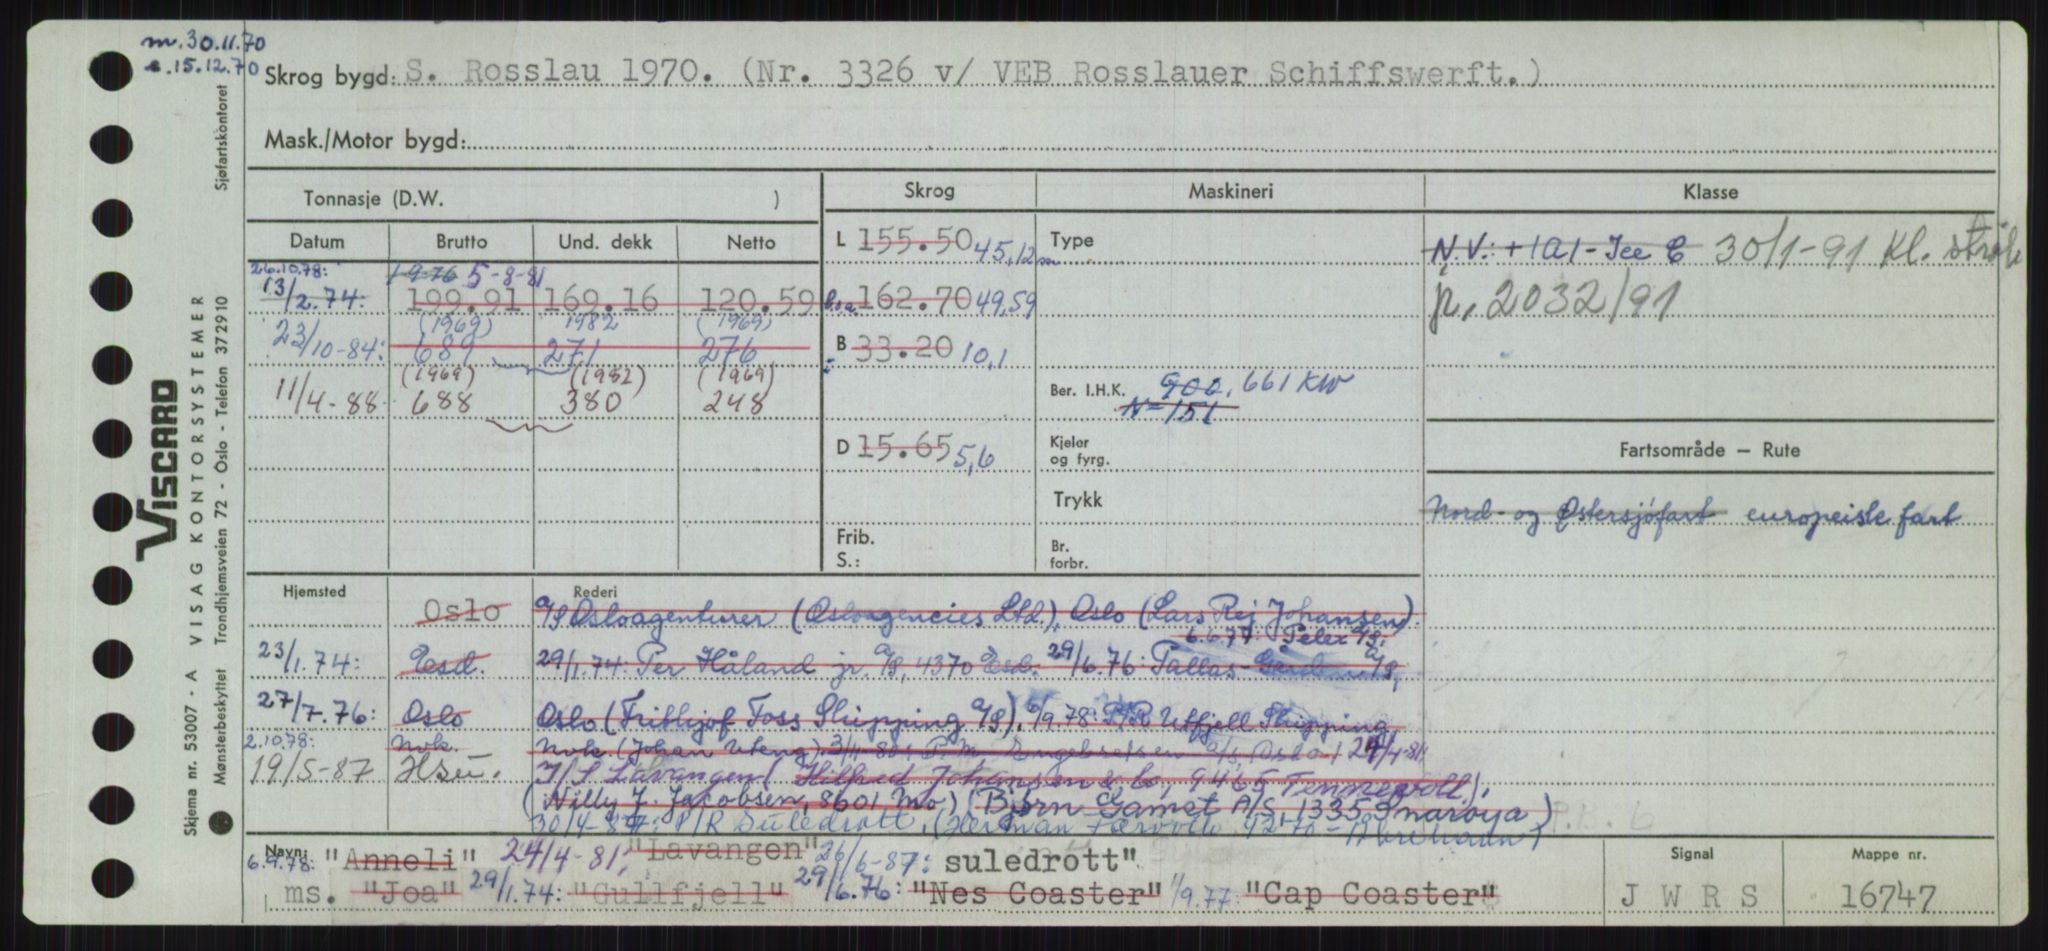 m. 30.11.70
e. 15.12.70
Skrog bygd: S. Rosslau 1970. (Nr. 3326 v/ VEB Rosslauer Schiffswerft.)
Mask./Motor bygd:
Tonnasje (D.W. )
Skrog
Maskineri
Klasse
Datum Brutto Und. dekk Netto
26.10.78: 1-9-76 5-8-81
13/2.74: 199.91 169.16 120.59
(1969) 1982 (1969)
23/10-84: 689 271 276
(1969) (1982) (1969)
11/4-88 688 380 248
L 155.50 45,12 m
b.o.a. 162.70 49,59
B 33.20 10,1
D 15.65 5,6
Frib.
S.:
Type
Ber. I.H.K. 900, 661 KW
N=151
Kjeler
og fyrg.
Trykk
Br.
forbr.
N.V.: +1A1-Ice C 30/1-91 Kl. strøk
jr. 2032/91
Fartsområde – Rute
Nord- og Østersjøfart europeiske fart
Hjemsted Rederi
Oslo A/S Osloagenturer (Osloagencies Ltd.), Oslo (Lars Rej Johansen).
6.6.77: Peter A/S,
23/1.74: Esd. 29/1.74: Per Håland jr. A/S, 4370 Esd. 29/6.76: Pallas A/S,
27/7.76: Oslo Oslo (Frithjof Foss Shipping A/S). 6/9.78: P/R Utfjell Shipping
2.10.78: Nvk. Nvk. (Johan Uteng) 3/11-80: P.M. Engebretsen A/S, Oslo) 24/4-81:
19/5-87 Hsu. I/S Lavangen (Hilfred Johansen & Co, 9465 Tennevoll),
(Nilly J. Jacobsen, 8601 Mo) (Bjørn Gamst A/S, 1335 Snarøya)
30/4-87: P/R Suledrott, (Herman 4270 Åkrehamn)
P.R. 6
Navn:
6.9.78: "Anneli" 24/4-81: "Lavangen" 26/6-87: suledrott"
ms. "Joa" 29/1.74: "Gullfjell" 29/6.76: "Nes Coaster" 1/9.77: "Cap Coaster"
Signal
J W R S
Mappe nr.
16747
VISCARD
Skjema nr. 53007 - A VISAG KONTORSYSTEMER
Mønsterbeskyttet Trondhjemsveien 72 - Oslo - Telefon 372910 Sjøfartskontoret